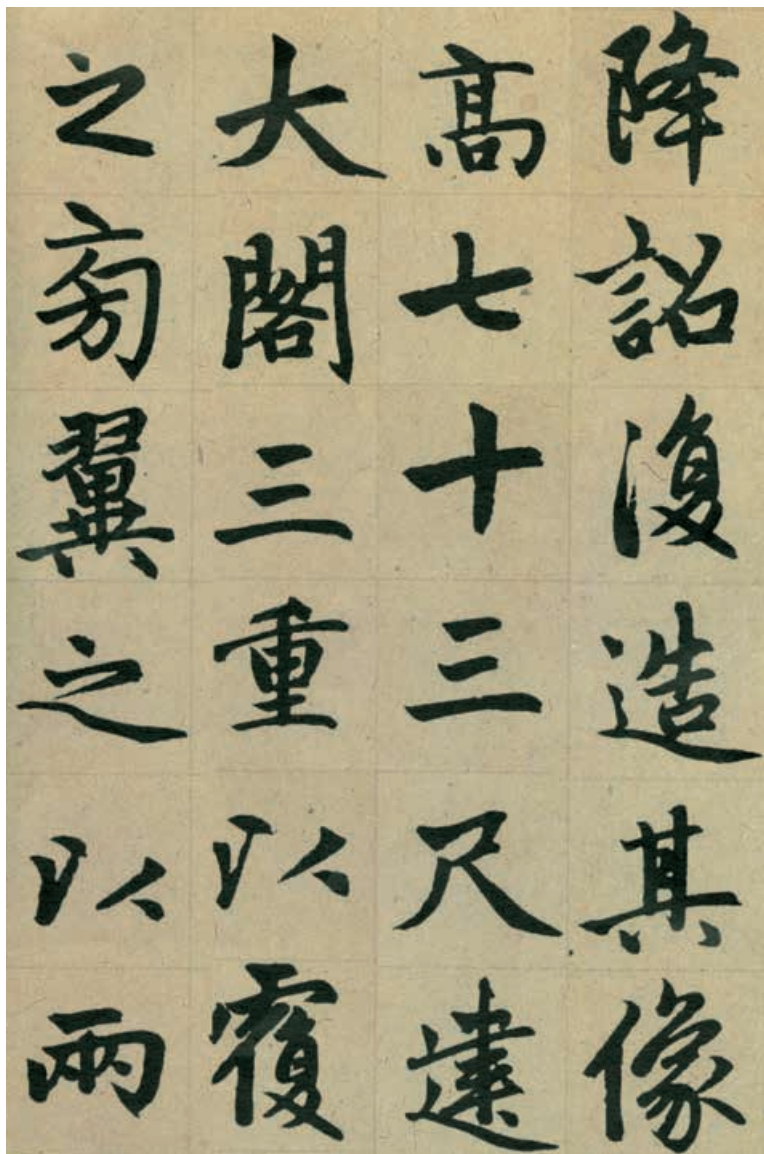 降詔復造其像
髙七十三尺建
大閣三重以覆
之旁翼之以兩